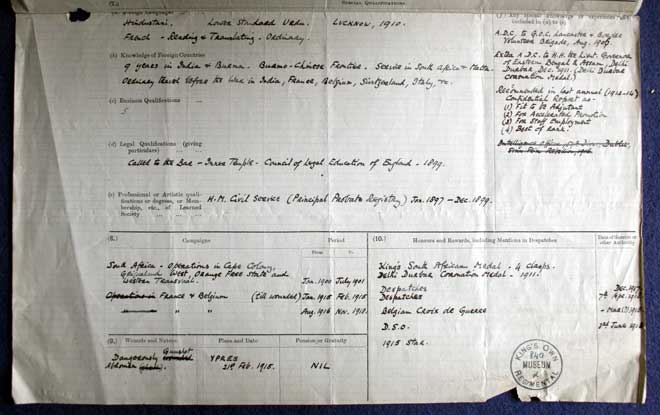 (7.) SPECIAL QUALIFICATIONS
Hindustani. Lower Standard Urdu. LUCKNOW, 1910.
French - Reading & Translating - Ordinary
(b) Knowledge of Foreign Countries
9 years in India & Burma. Burmo-Chinese Frontier. Service in South Africa & Malta.
Ordinary travel before the War in India, France, Belgium, Switzerland, Italy, &c.
(c) Business Qualifications ...
(d) Legal Qualifications (giving
particulars) ... ...
Called to the Bar - Inner Temple - Council of Legal Education of England - 1899.
(e) Professional or Artistic quali-
fications or degrees, or Mem-
bership, etc., of Learned
Society ... ...
H.M. Civil Service (Principal Probate Registry) Jan. 1897 - Dec. 1899.
included in (a) to (e)
A.D.C. to G.O.C. Lancaster & Border
Volunteer Brigade, Aug. 1906.
Extra A.D.C. to H.H. the Lieut. Governor
of Eastern Bengal & Assam (Delhi
Durbar Dec. 1911. (Delhi Durbar
Coronation Medal.)
Recommended in last annual (1913-14)
Confidential Report as -
(1) Fit to be Adjutant
(2) For Accelerated Promotion
(3) For Staff Employment
(4) Best of Rank.
Intelligence Officer, Dublin,
Sinn Fein Rebellion, 1916.
(8.) Campaigns Period
From To
South Africa - Operations in Cape Colony,
Griqualand West, Orange Free State and
Western Transvaal. Jan. 1900 July 1901
Operations in France & Belgium (till wounded) Jan. 1915 Feb. 1915
" " Aug. 1916 Nov. 1918.
(9.) Wounds and Nature. Place and Date Pension or Gratuity
Dangerously Gunshot wounded
Abdomen YPRES
21st Feb. 1915. NIL
(10.) Honours and Rewards, including Mentions in Despatches Date of Gazette or
other Authority
King's South African Medal - 4 clasps.
Delhi Durbar Coronation Medal - 1911.
Despatches Dec. 1917
Despatches 7th Apr. 1918
Belgian Croix de Guerre
D.S.O. 3rd June 1918
1915 Star.
KING'S OWN
MUSEUM
REGIMENTAL